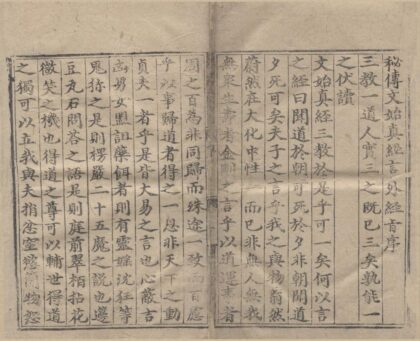 秘傳文始真經言外經旨序
三教一道人實三之既已三矣孰能一
之伏讀
文始真經三教於是乎可一矣何以言
之經曰聞道於朝可死於夕非朝聞道
夕死可矣夫子之言乎我之與物蓊然
蔚然在大化中性一而已非無人無我
無眾生壽者金剛之言乎以道運事者
周之百為非同歸而殊途一致而百慮
乎以事歸道者得之一息非天下之動
貞夫一者乎是皆大易之言也心蔽吉
凶男女點詛藥餌者則有靈婬沈狂等
鬼攝之是則楞嚴二十五魔之說也邊
豆九石問答之語是則庭前翠栢拈花
微笑之機也得道之尊可以輔世得道
之獨可以立我與夫指忿窒慾